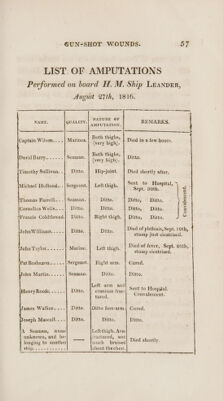 GUN-SHOT WOUNDS. 57
LIST OF AMPUTATIONS
Performed on board H. M. Ship LEANDER,
August 27th, 1816.
NAME. QUALITY. NATURE OF AMPUTATION. REMARKS.
Captain Wilson Marines. Both thighs, (very high). Died in a few hours.
David Barry Seaman. Both thighs, (very high). Ditto.
Timothy Sullivan. Ditto. Hip-joint. Died shortly after.
Michael Holland. Sergeant. Left thigh. Sent to Hospital, Sept. 30th.
Thomas Farrell Seaman. Ditto. Ditto. Ditto.
Cornelius Ditto. Ditto. Ditto. Ditto.
Francis Ditto. Right thigh. Ditto. Ditto.
Convalescent.
John Williams Ditto. Ditto. Died of phthisis, Sept. 10th, stump just cicatrised.
John Taylor Marine. Left thigh. Died of fever, Sept. 10th, stump cicatrised.
Pat Sergeant. Right arm. Cured.
John Martin Seaman. Ditto. Ditto.
Henry Ditto. Left arm and Sent to Hospital. Convalescent.
James Walker Ditto. Ditto fore-arm. Cured.
Joseph Ditto. Ditto. Ditto.
A Seaman, name unknown, and belonging to another ship —— Left thigh. Arm fractured, and much bruised about the chest. Died shortly.